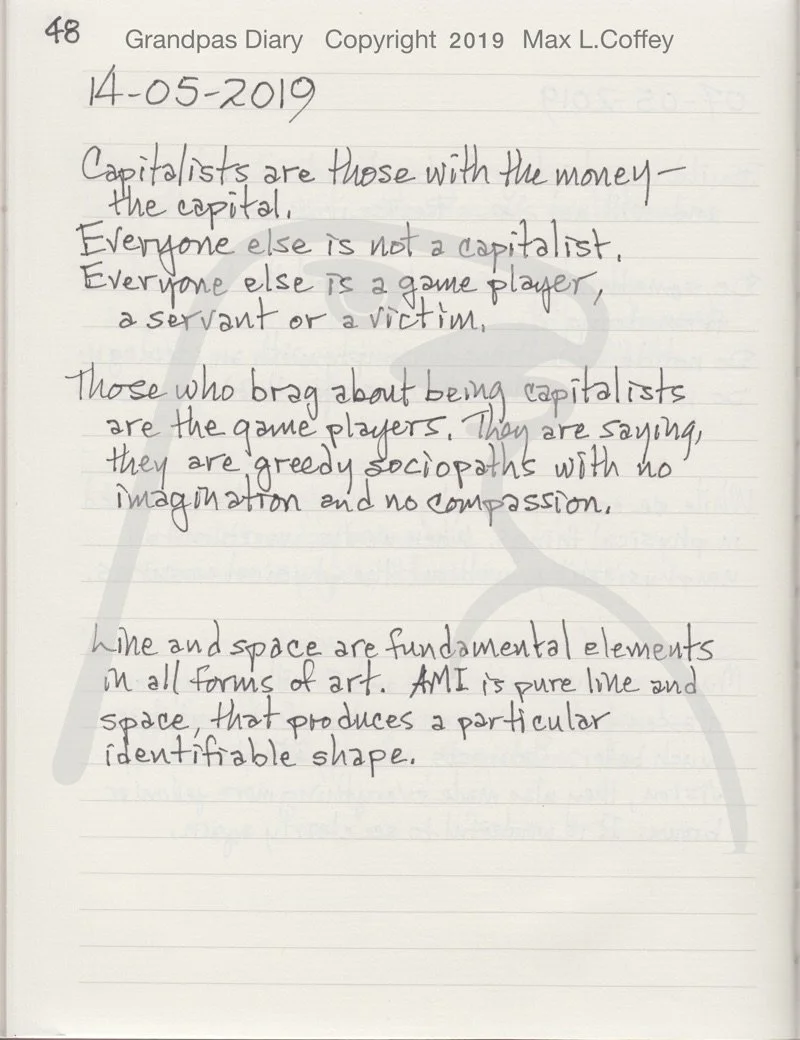 48
Grandpas Diary Copyright 2019 Max L.Coffey
14-05-2019
Capitalists are those with the money—
the capital.
Everyone else is not a capitalist.
Everyone else is a game player,
a servant or a victim.
Those who brag about being capitalists
are the game players. They are saying,
they are greedy sociopaths with no
imagination and no compassion.
Line and space are fundamental elements
in all forms of art. AMI is pure line and
space, that produces a particular
identifiable shape.